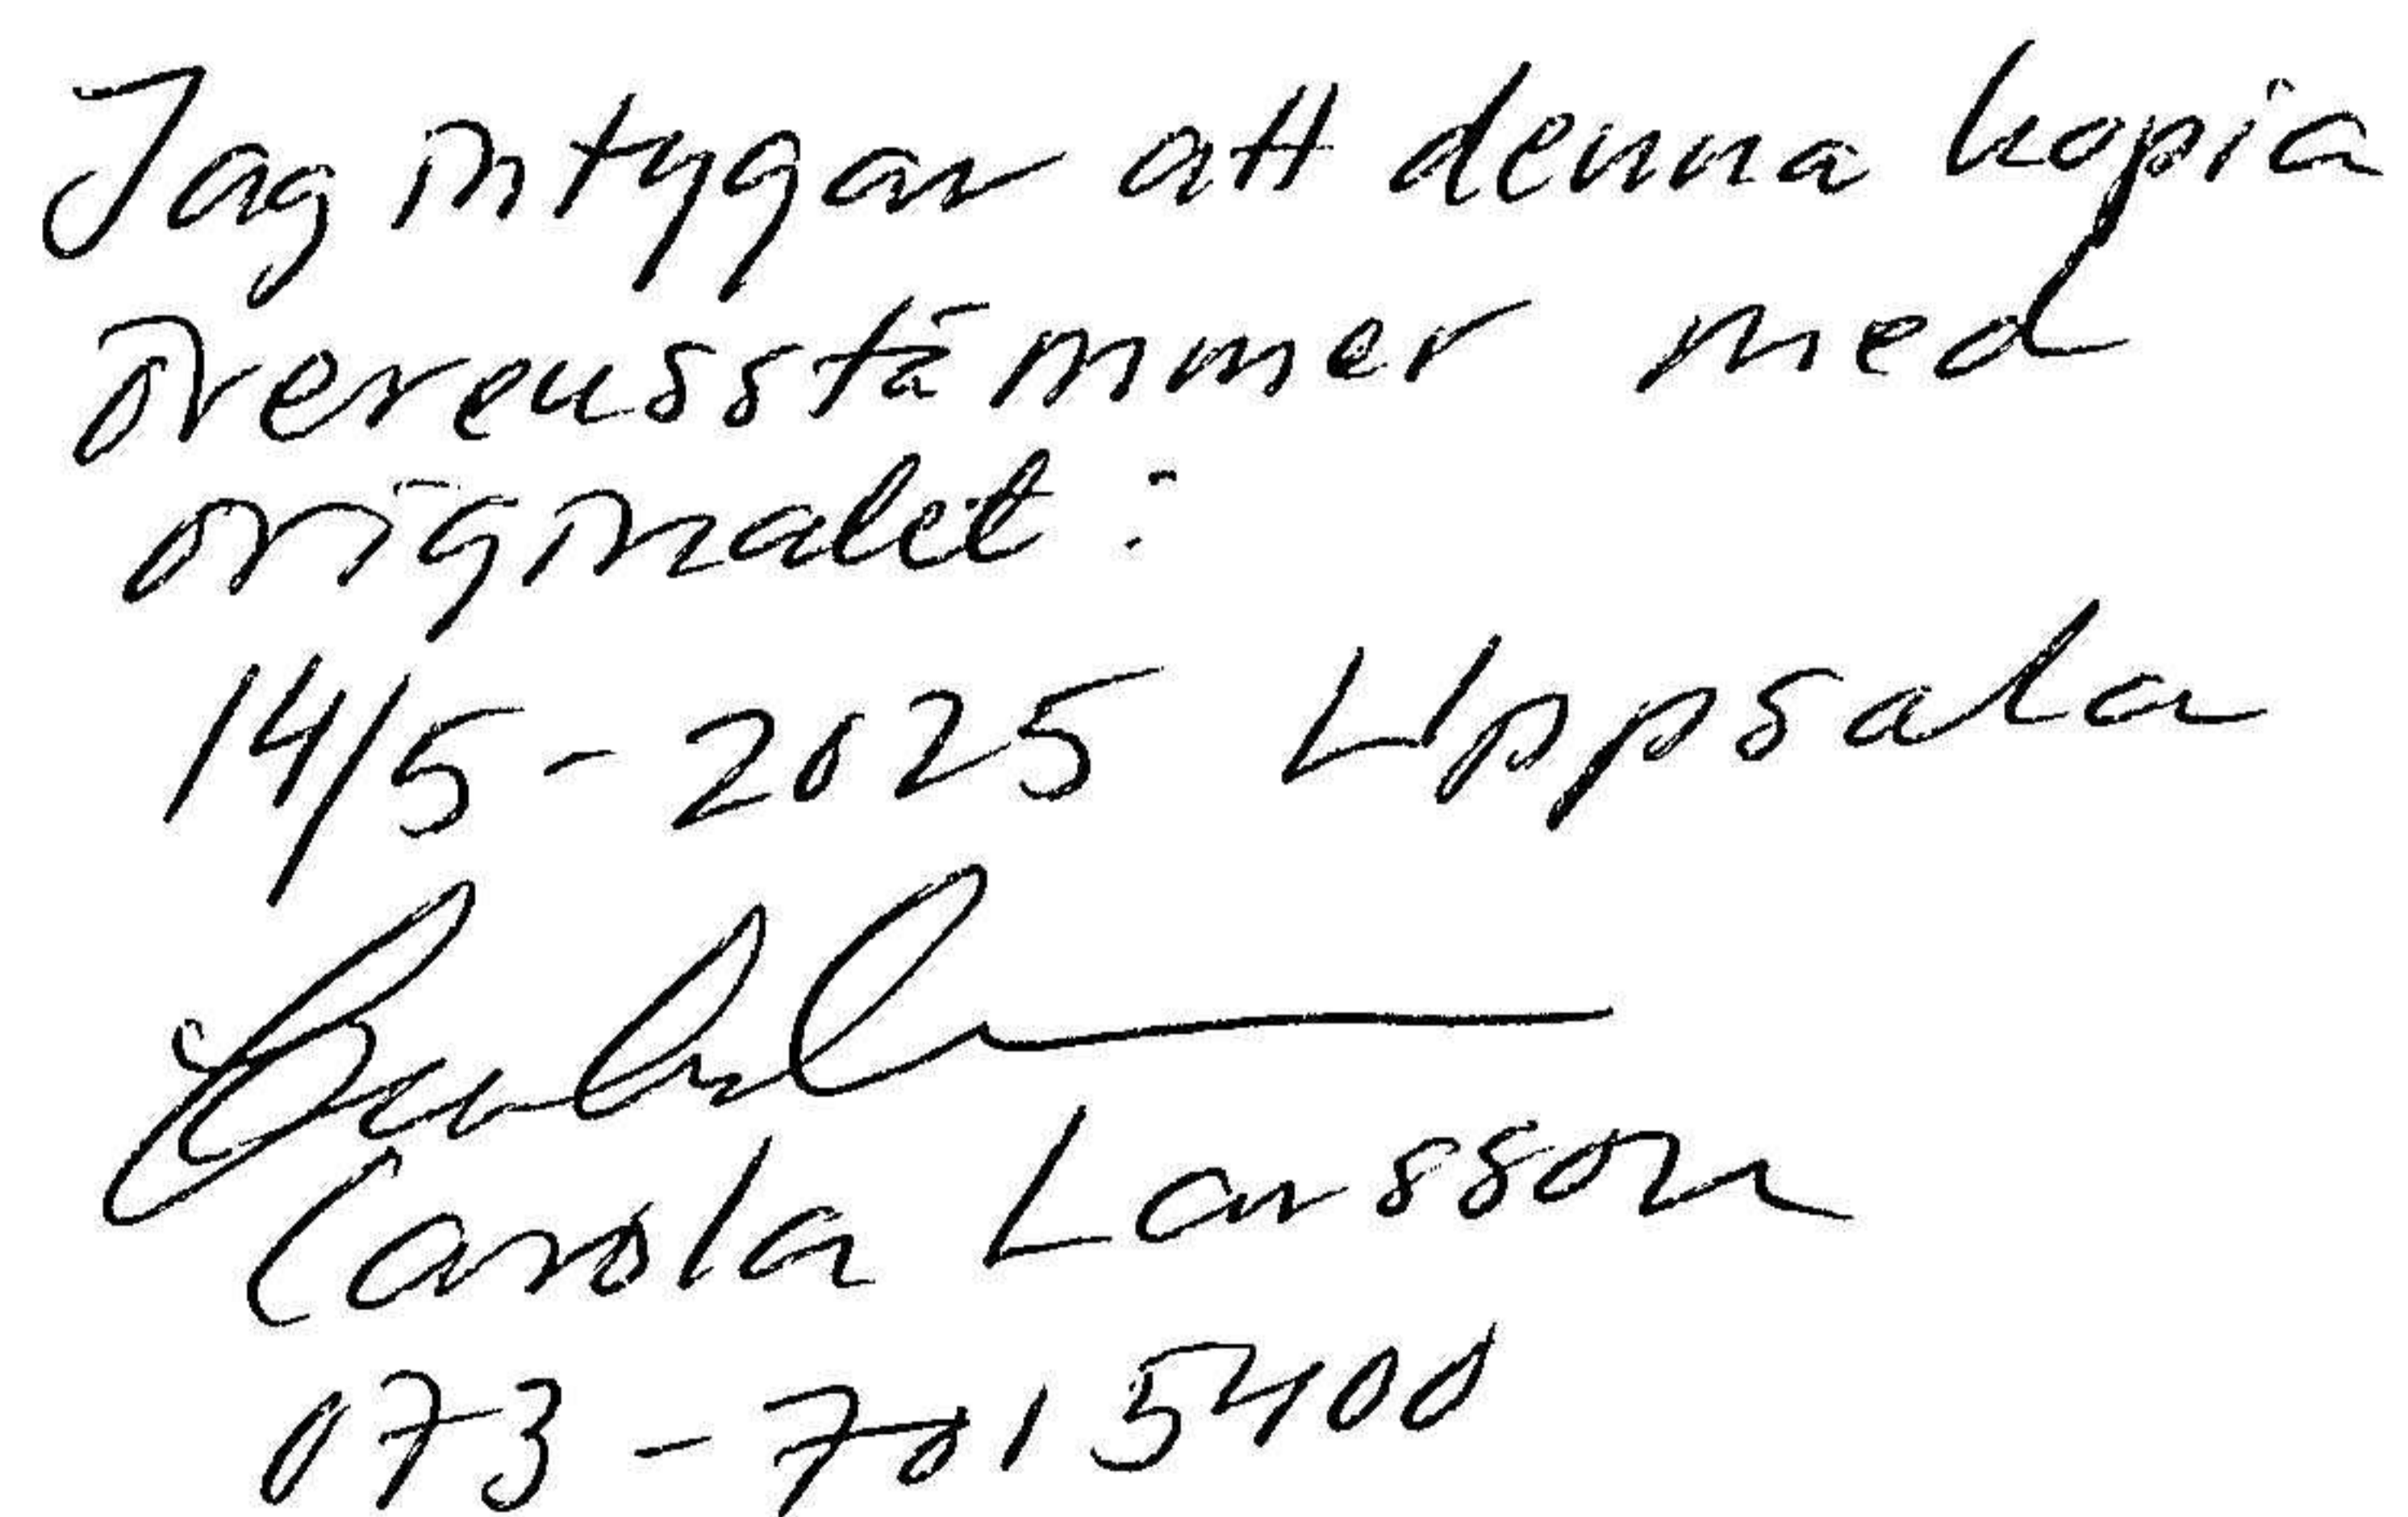 Jag intygar att denna kopia
överensstämmer med
originalet:
14/5-2025 Uppsala
Carola Larsson
073-7015400